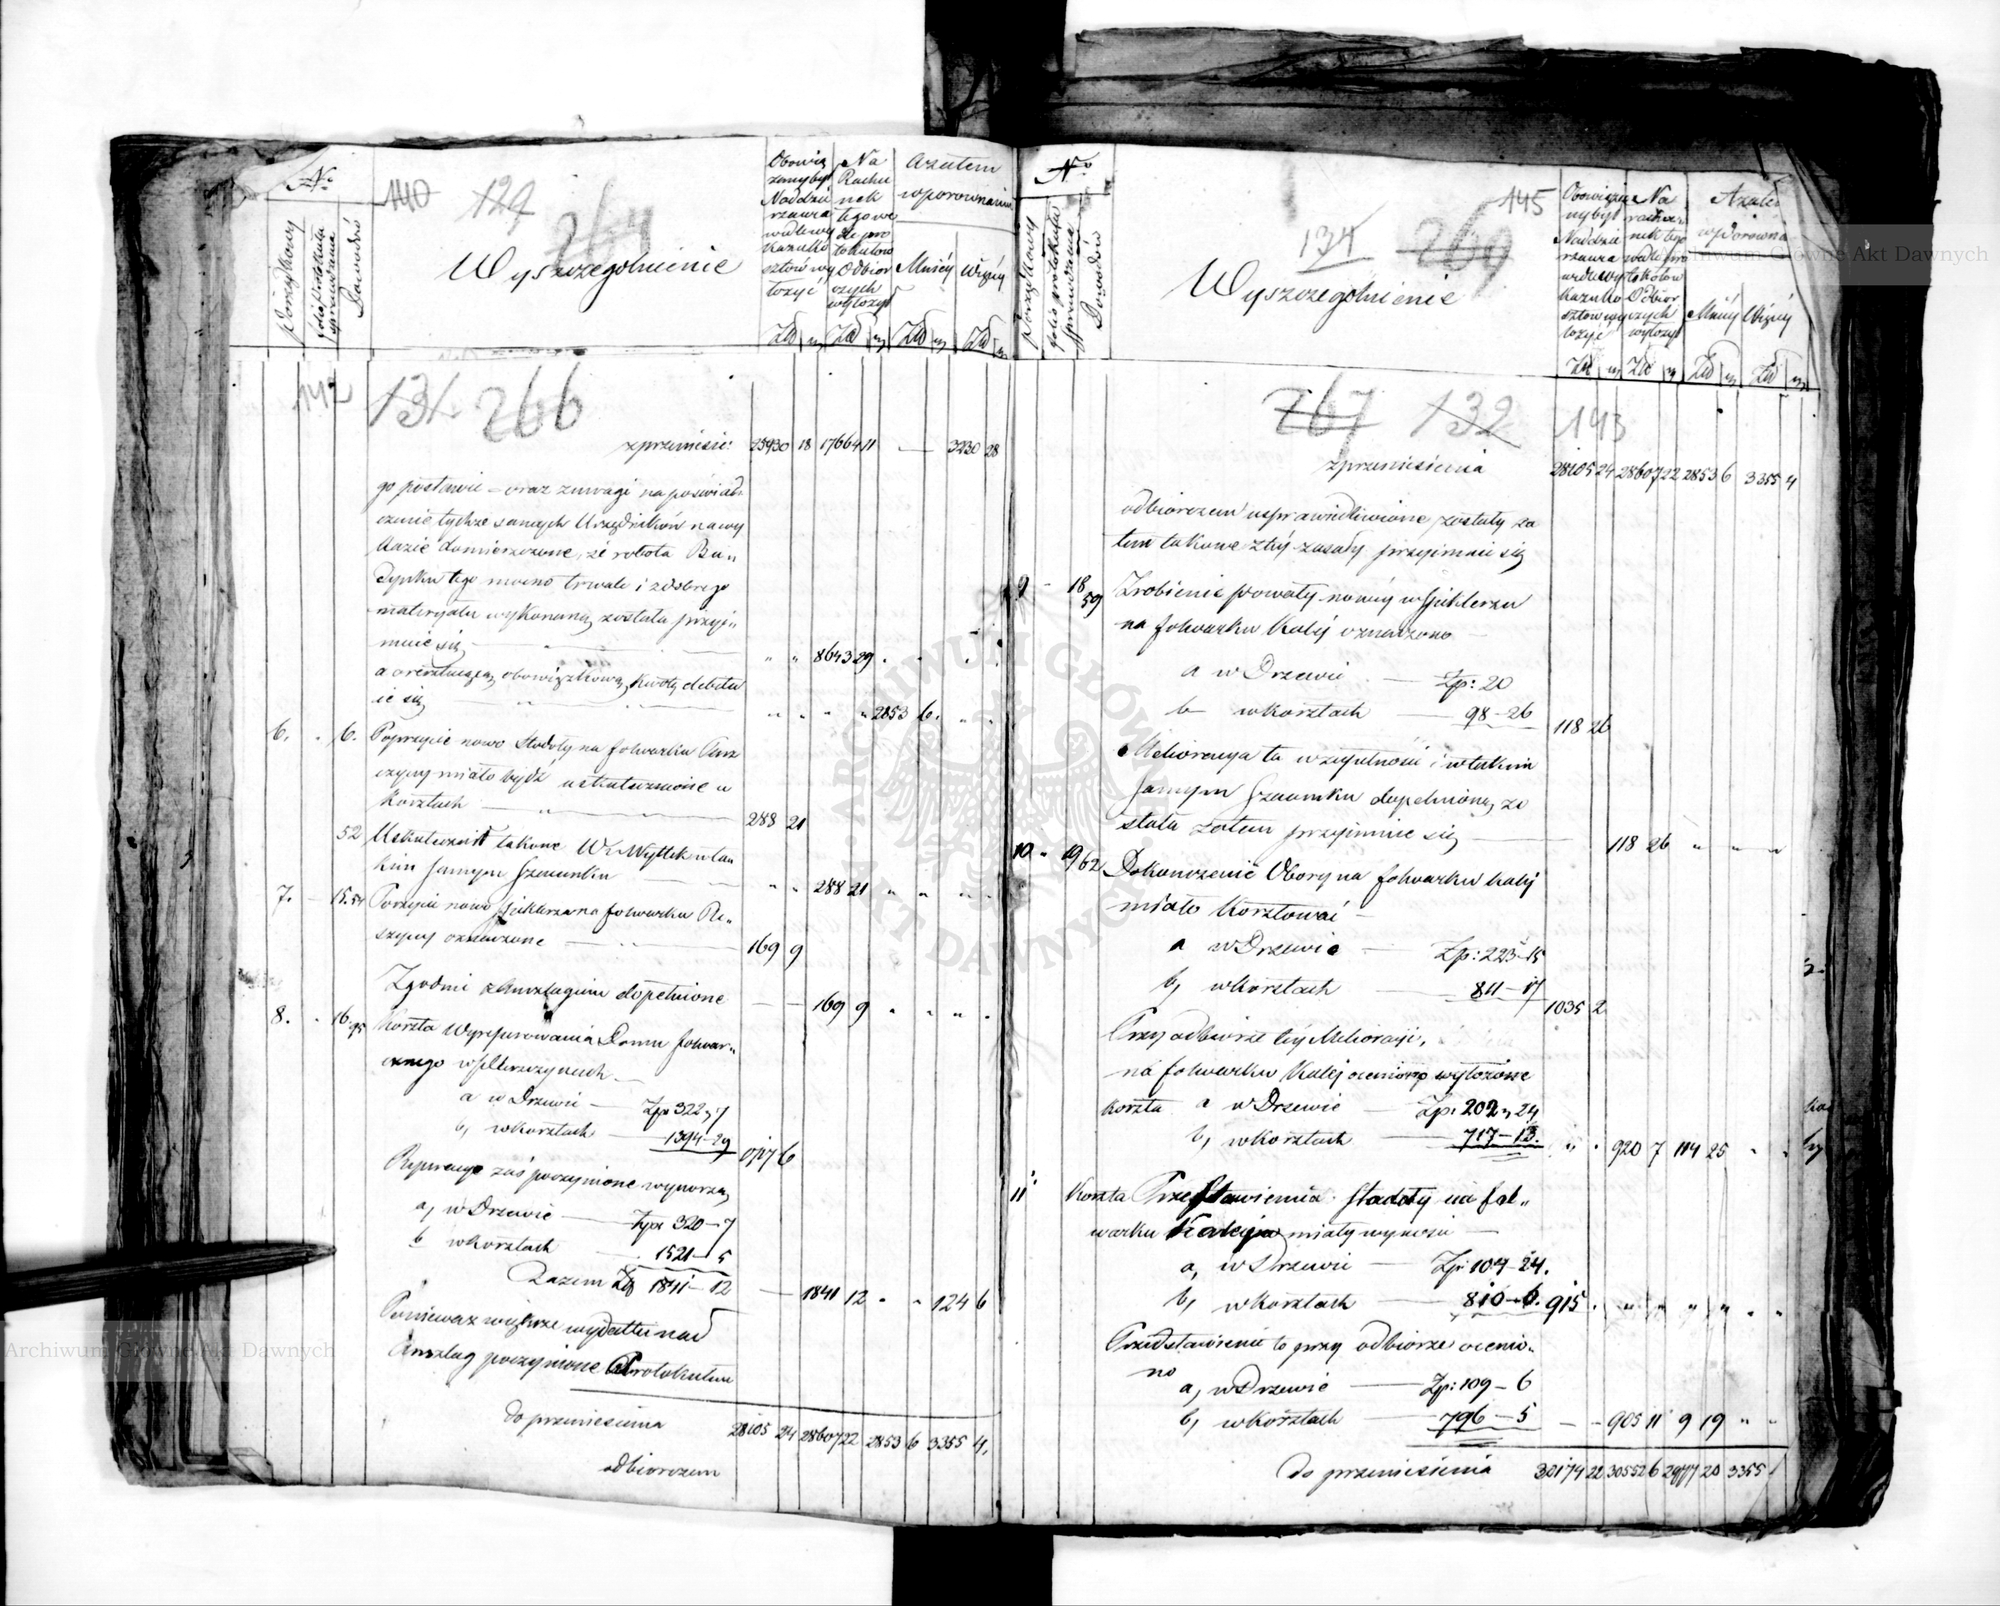 No
porządkowy
folio protokułu sprawdzenia
Dowodów
140 124
264
Wyszczegolnienie
Obowią
zany był
Naddzie
rzawca
według
Kazulko
sztów wy
łożyć
Na
Rachu
nek
tegowe
dle pro
tokułow
Odbior
czych
wyłożył
A zatem
w porownaniu
Mniéy
Więcéy
Złł gr Złł gr Złł gr Złł gr
142
131 266
z przeniesie: 25930 18 17664 11 — 3230 28
go postawić – oraz z uwagi na poświad
czenie tychże samych Urzędników na wy
kazie domierzczone, że robota Bu„
dynku tego mocno trwale i z dobrego
materyału wykonaną została przyj„
muie się — " " 8643 29
a oresztuiącą obowiązkową kwotę debitu
ie się — " " " " 2853 6
6. 6. Poprzycie nowo Stodoły na folwarku Pusz
czynj miało bydź uskutecznione w
Kosztach — 288 21
52 Uskutecznił takowe Wny Wyttek w ta
kim samym Szacunku — " " 288 21
7. 15.54 Poszycie nowo Spichlerza na folwarku Pu„
szczyny oznaczone — 169 9
Zgodnie z Anszlagiem dopełnione — 169 9
8. 16
Koszta Wyreperowania Domu folwar„
cznego
a w Drzewie — Złp 322 „ 7
b, w Kosztach — 1394 – 29
1717 6
Reperacye zaś poczynione wynoszą
a, w Drzewie — Złp: 320 – 7
b w Kosztach — 1521 – 5
Razem Złp 1841 – 12 — 1841 12 " " 124 6
Ponieważ większe wydatki nad
Anszlag poczynione Protokułem
do przeniesienia 28105 24 28607 22 2853 6 3355 4,
odbiorczem
No
porządkowy
folio protokułu sprawdzenia
Dowodów
145
134 269
Wyszczegolnienie
Obowiązan
ny był
Naddzie
rzawca
wedłuy
Kazulko
sztów wy
łożyć
Na
rachu
nek tego
wedle pro
tokułow
Odbior
czych
wyłożył
A zatem
w porówna
Mniéy
Więcéy
Złł gr Złł gr Złł gr Złł gr
267 132 143
z przeniesienia 28105 24 28607 22 2853 6 3355 4
odbiorczem usprawiedliwione zostały za
tem takowe z tey zasady przyimuie się
9 18 59 Zrobienie powały nowéy w Spichlerzu
na folwarku Kaléj oznaczono —
a w Drzewie — Złp: 20
b w Kosztach — 98 – 26
118 26
Melioracya ta w zupełności i w takim
samym szacunku dopełnioną zo
stała zatem przyimuie się — 118 26 " " "
10 19 62 Dokończenie Obory na folwarku Kaléj
miało kosztować —
a w Drzewie — Złp: 223 – 15
b, w Kosztach — 811 – 17
1035 2
Przy odbiorze téy Melioracji,
na folwarku Kaléj oceniono wyłożone
koszta a w Drzewie Złp: 202 „ 24
b, w Kosztach — 717 – 13. " " 920 7 114 25
11 Koszta Przestawienia Stodoły na fol„
warku Kaleju miały wynosić —
a, w Drzewie — Złp: 104 – 24.
b, w Kosztach — 810 – 6. 915 " " " "
Przedstawienie to przy odbiorze ocenio„
no
a, w Drzewie — Złp: 109 – 6
b, w Kosztach — 796 – 5 — 905 11 9 19 " "
do przeniesienia 30174 22 30552 6 2977 20 3355
ARCHIWUM GŁÓWNE AKT DAWNYCH
Archiwum Główne Akt Dawnych
Archiwum Główne Akt Dawnych